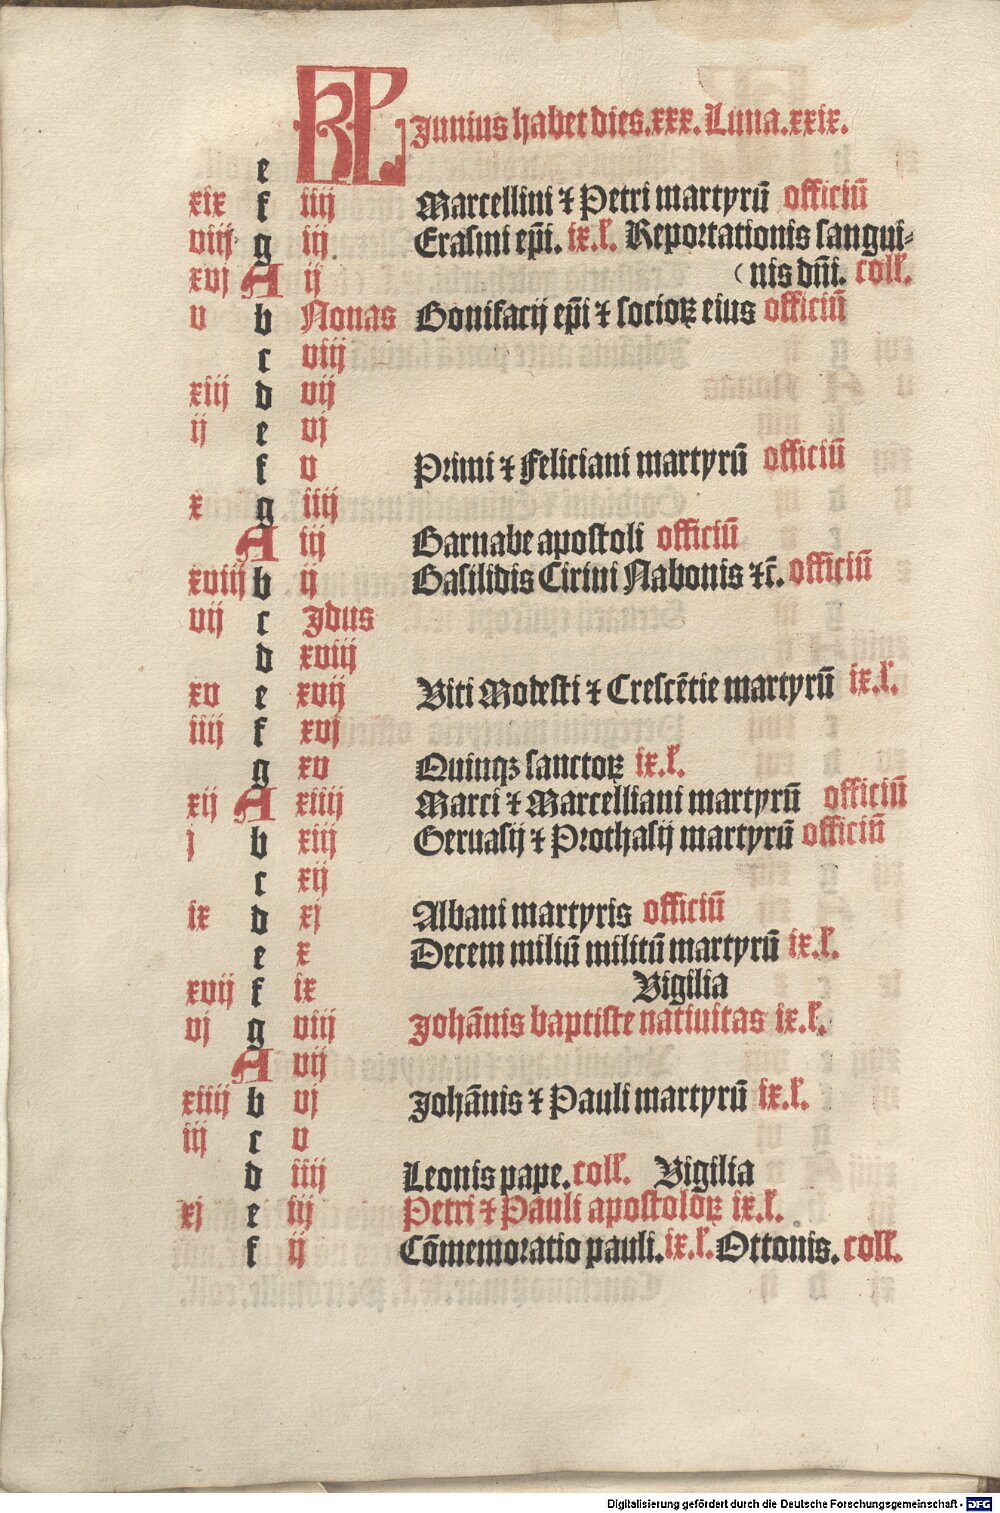 KL Junius habet dies.xxx. Luna.xxix.
e
xix f iiij Marcellini ⁊ Petri martyrū officiū
viij g iij Erasmi ep̄i. ix.l̓. Reportationis sangui⸗
xvj A ij (nis dn̄i. coll̓.
v b Nonas Bonifacij ep̄i ⁊ socioꝝ eius officiū
c viij
xiij d vij
ij e vj
f v Primi ⁊ Feliciani martyrū officiū
x g iiij
A iij Barnabe apostoli officiū
xviij b ij Basilidis Cirini Nabonis ⁊c̄. officiū
vij c Jdus
d xviij
xv e xvij Viti Modesti ⁊ Crescētie martyrū ix.l̓.
iiij f xvj
g xv Quinqꝫ sanctoꝝ ix.l̓.
xij A xiiij Marci ⁊ Marcelliani martyrū officiū
j b xiij Geruasij ⁊ Prothasij martyrū officiū
c xij
ix d xj Albani martyris officiū
e x Decem miliū militū martyrū ix.l̓.
xvij f ix Vigilia
vj g viij Johānis baptiste natiuitas ix.l̓.
A vij
xiiij b vj Johānis ⁊ Pauli martyrū ix.l̓.
iij c v
d iiij Leonis pape. coll̓. Vigilia
xj e iij Petri ⁊ Pauli apostolōꝝ ix.l̓.
f ij Cōmemoratio pauli. ix.l̓. Ottonis. coll̓.
Digitalisierung gefördert durch die Deutsche Forschungsgemeinschaft - DFG